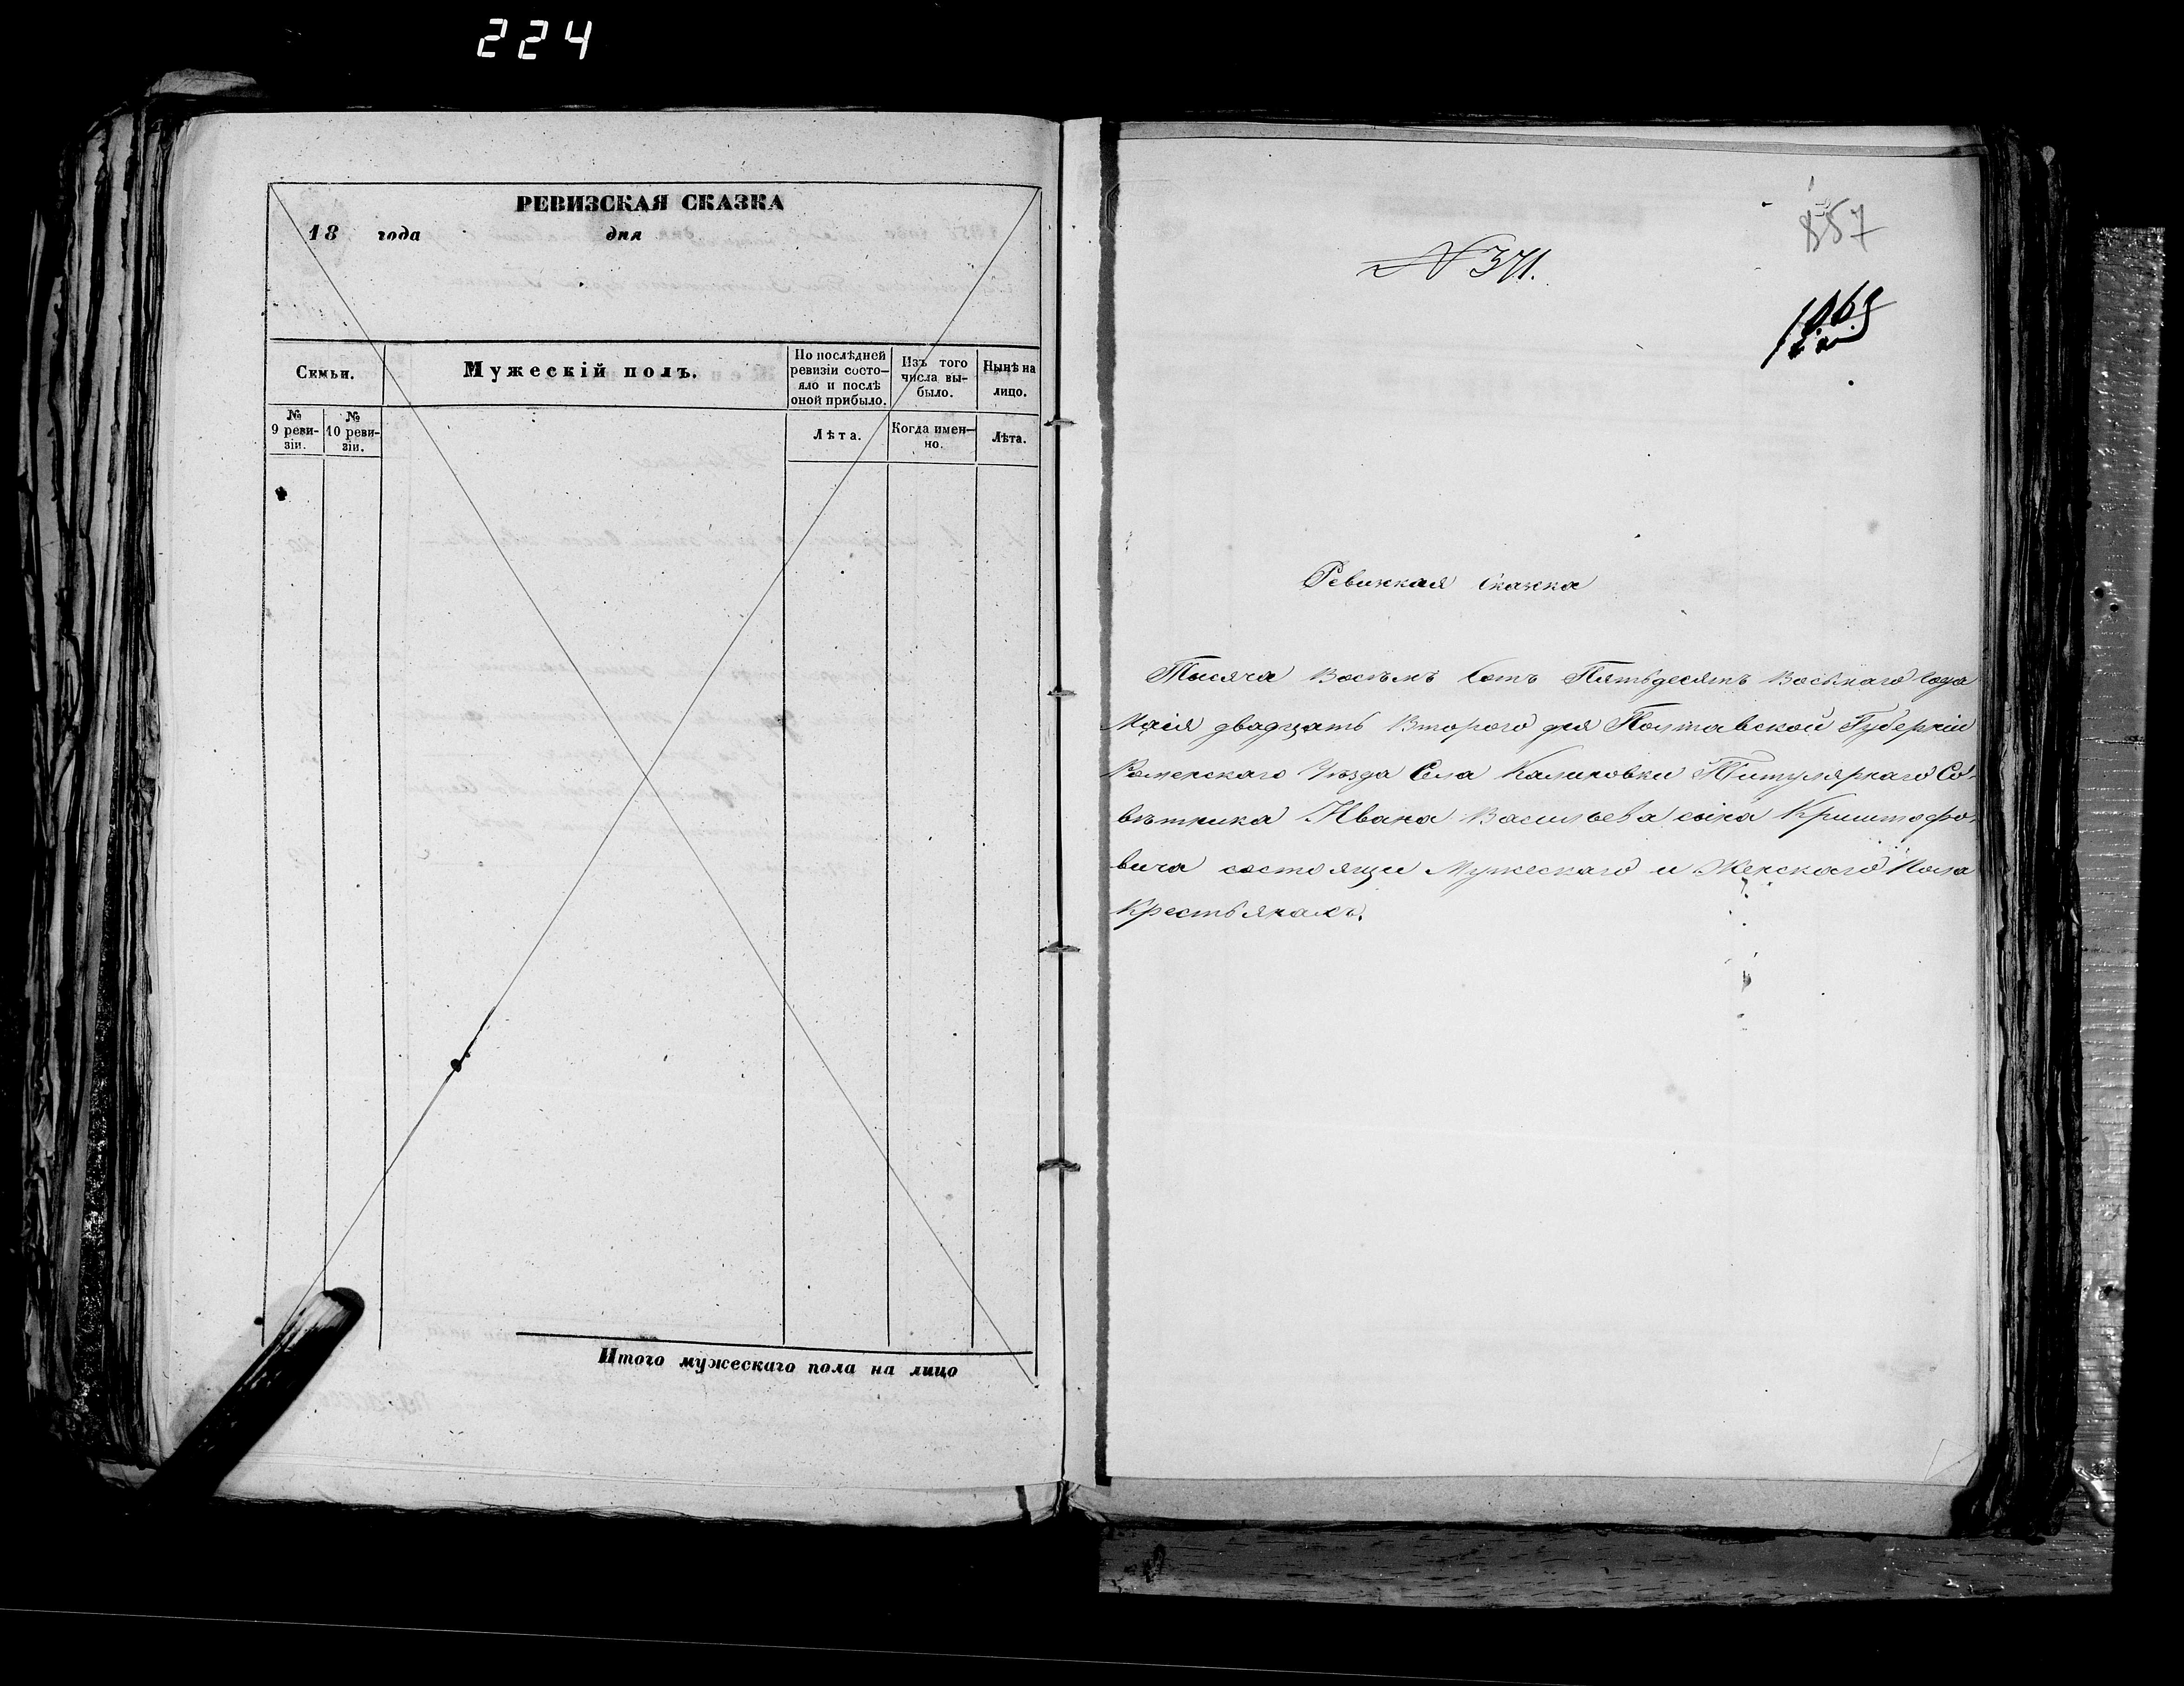 224
РЕВИЗСКАЯ СКАЗКА
18 года дня
Семьи.
Мужескій полъ.
По послѣдней ревизіи состо-
яло и послѣ оной прибыло.
Изъ того числа вы-
было.
Нынѣ на лицо.
№ 9 реви-
зіи.
№ 10 реви-
зіи.
Лѣта.
Когда имен-
но.
Лѣта.
Итого мужескаго пола на лицо
857
№ 371.
Ревизкая сказка
Тысяча Восъмъ Сотъ Пятьдесятъ Восмаго Года
Маія двадцать Второго дня Полтавской Губерніи
Роменскаго Уѣзда Села Калиновки Титулярнаго Со-
вѣтника Ивана Васильева сына Криштофо-
вича состоящи Мужескаго и Женскаго Пола
Крестьянахъ.